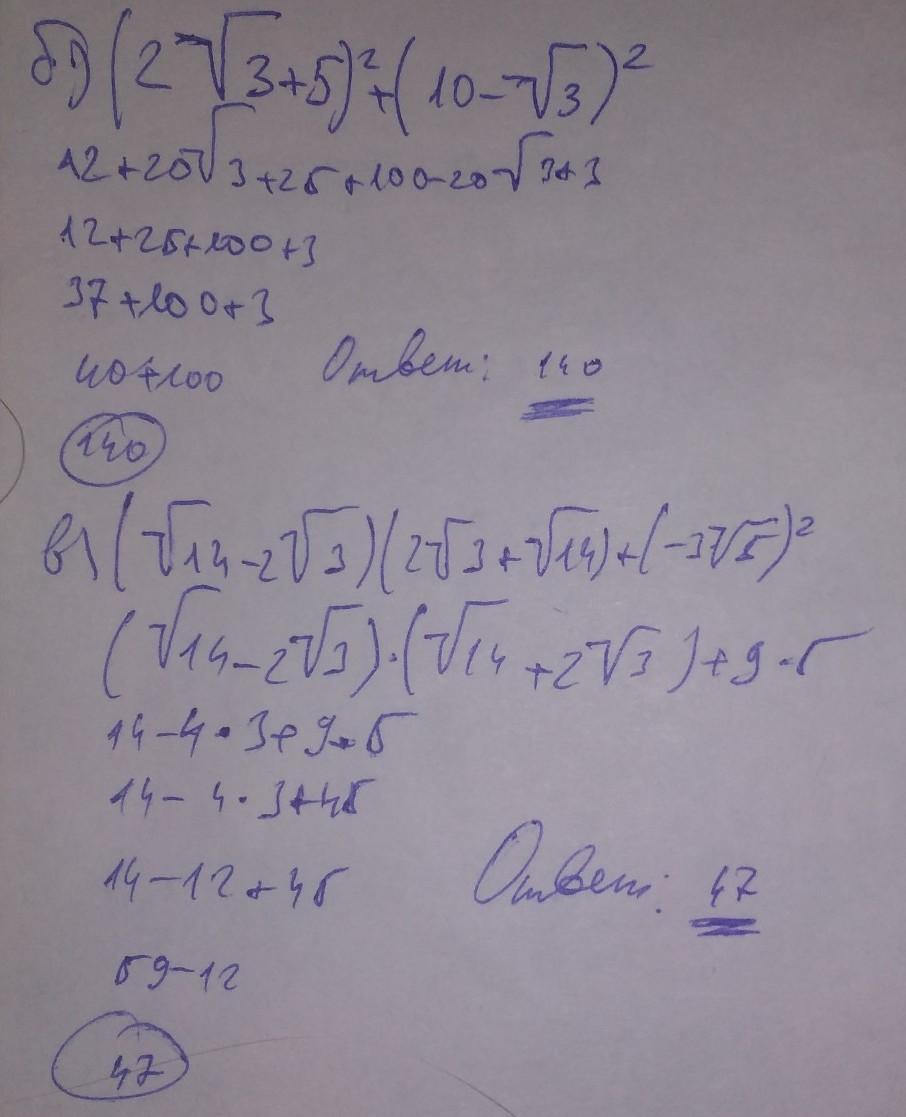 б) (2√3+5)²+(10-√3)²
12+20√3+25+100-20√3+3
12+25+100+3
37+100+3
40+100 Ответ: 140
140
в) (√14-2√3)(2√3+√14)+(-3√5)²
(√14-2√3)·(√14+2√3)+9·5
14-4·3+9·5
14-4·3+45
14-12+45 Ответ: 47
59-12
47